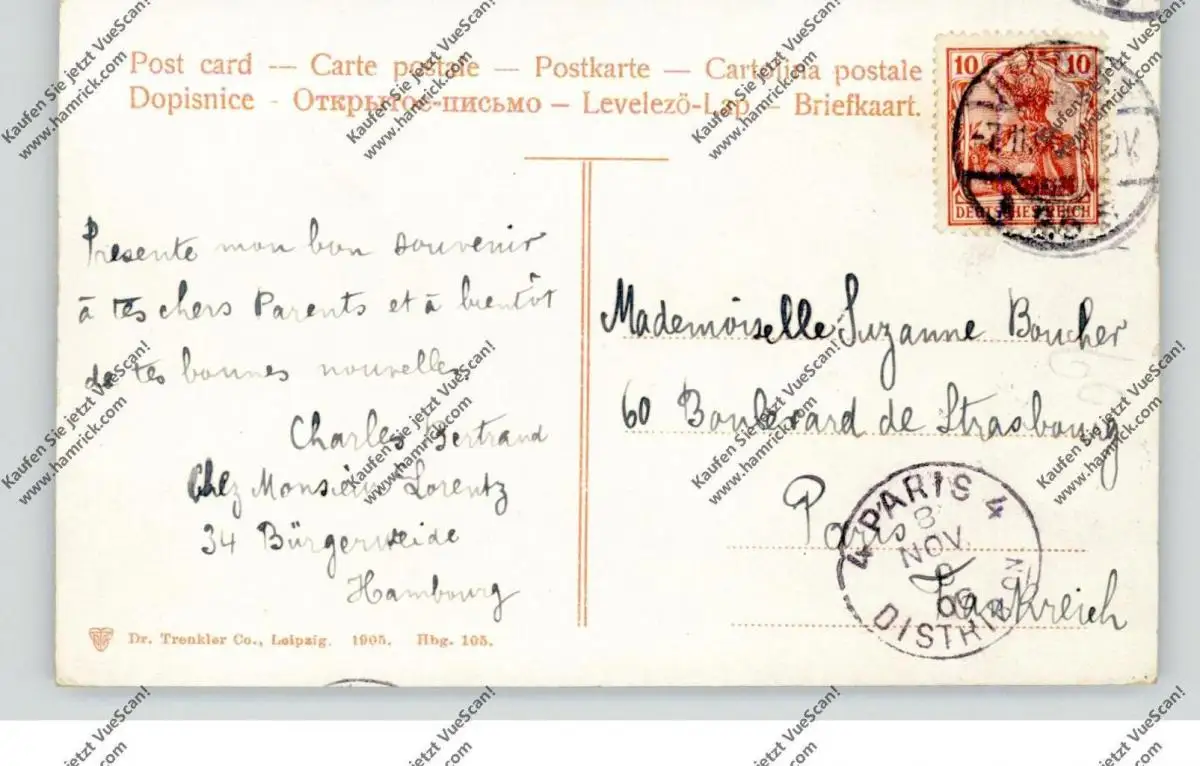 Post card — Carte postale — Postkarte — Cartolina postale
Dopisnice - Открытое-письмо – Levelezö-Lap – Briefkaart.
10 10
DEUTSCHES REICH
Presente mon bon souvenir
à tes chers Parents et à bientôt
de tes bonnes nouvelles
Charles Bertrand
Chez Monsieur Lorentz
34 Bürgerweide
Hambourg
Mademoiselle Suzanne Boucher
60 Boulevard de Strasbourg
Paris
Frankreich
4 PARIS 4
8
NOV.
06
DISTRIBUTION
Dr. Trenkler Co., Leipzig. 1905. Hbg. 105.
Kaufen Sie jetzt VueScan!
www.hamrick.com